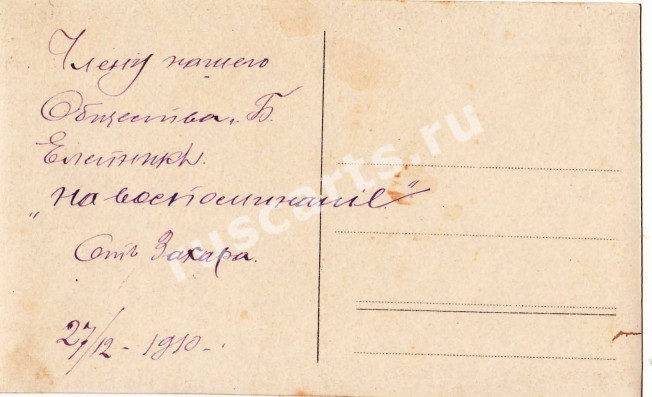 Члену нашего
Общества. Б.
"на воспоминанiе."
Отъ Захара.
27/12 - 1910 -
ruscarts.ru